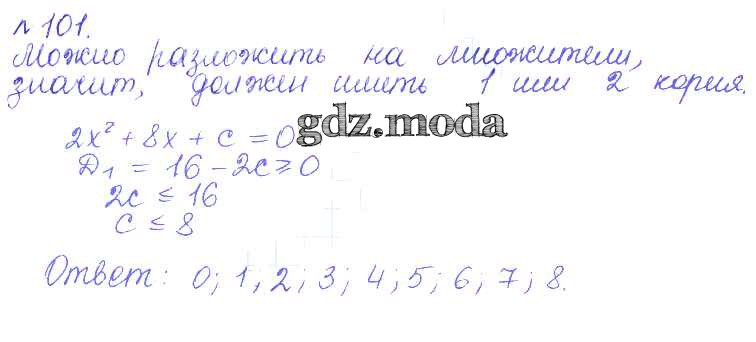 № 101.
Можно разложить на множители,
значит, должен иметь 1 или 2 корня.
2x² + 8x + c = 0
gdz.moda
Д₁ = 16 - 2c ≥ 0
2c ≤ 16
c ≤ 8
Ответ: 0; 1; 2; 3; 4; 5; 6; 7; 8.